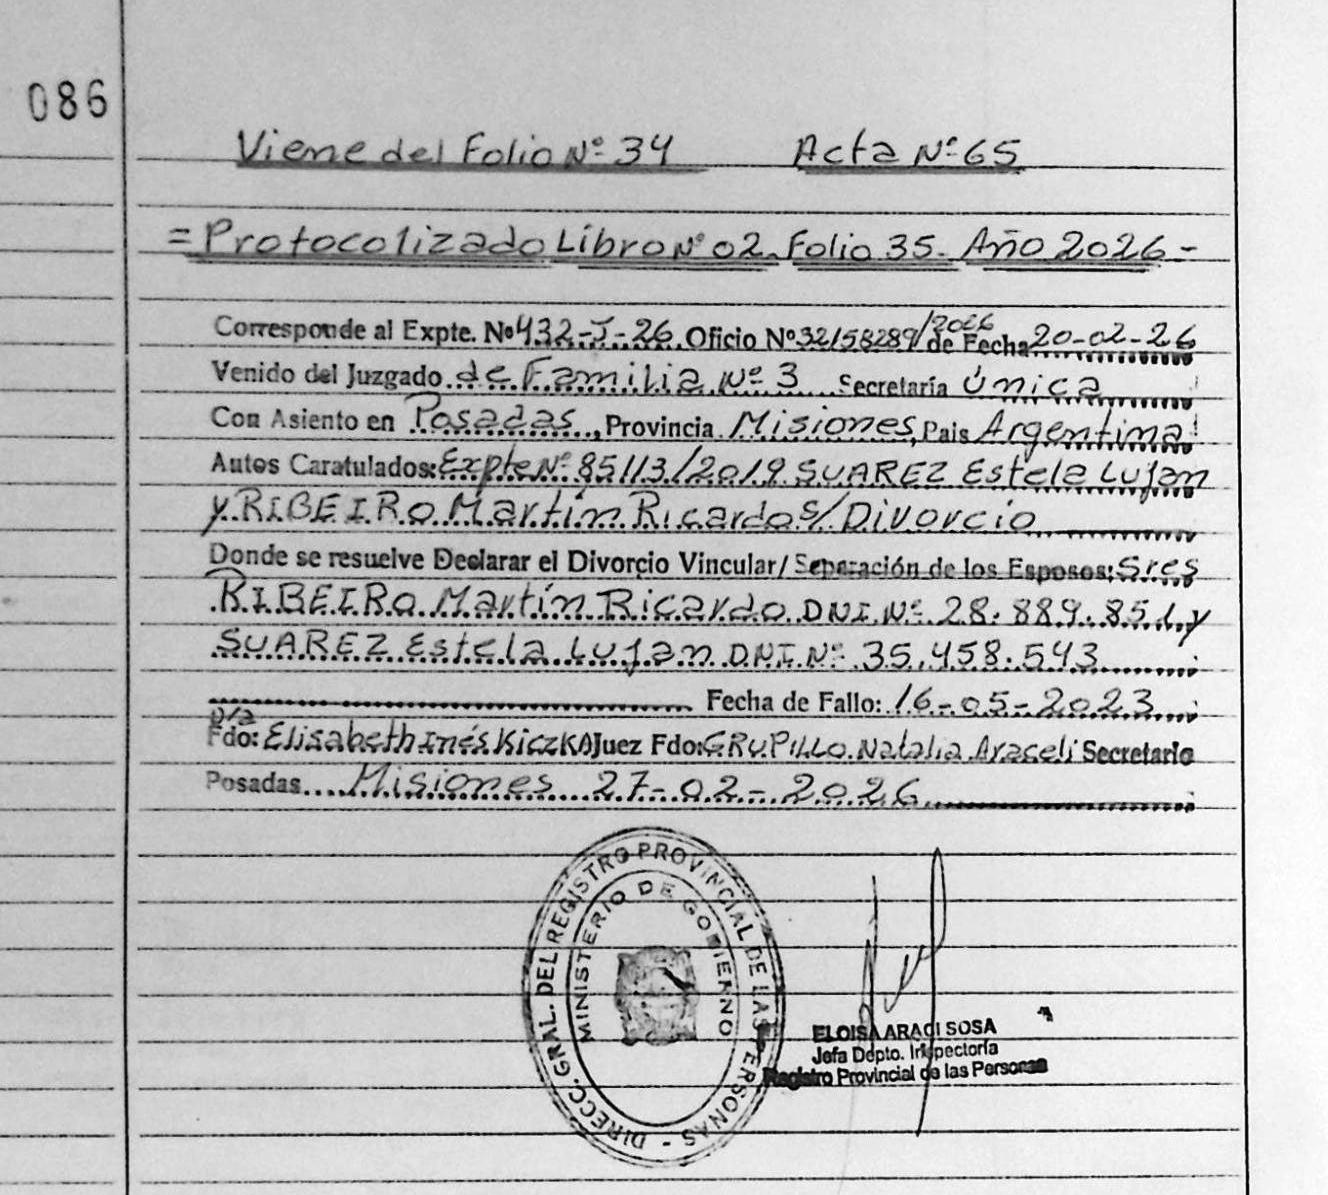 086
Viene del Folio Nº 34 Acta Nº 65
= Protocolizado Libro Nº 02. Folio 35. Año 2026 -
Corresponde al Expte. Nº 432-J-26. Oficio Nº 32158289/2026 de Fecha 20-02-26
Venido del Juzgado de Familia Nº 3 Secretaría Única
Con Asiento en Posadas, Provincia Misiones, Pais Argentina
Autos Caratulados: Expte Nº 85113/2019 SUAREZ Estela Lujan
y RIBEIRO Martín Ricardo S/ Divorcio
Donde se resuelve Declarar el Divorcio Vincular/ Separación de los Esposos: Sres
RIBEIRO Martín Ricardo DNI Nº 28.889.851 y
SUAREZ Estela Lujan DNI Nº 35.458.543
Fecha de Fallo: 16-05-2023
p/a
Fdo: Elisabeth Inés KiczKA Juez Fdo: GRUPILLO Natalia Araceli Secretario
Posadas.... Misiones 27-02-2026
DIRECC. GRAL. DEL REGISTRO PROVINCIAL DE LAS PERSONAS -
MINISTERIO DE GOBIERNO
ELOISA ARACI SOSA
Jefa Depto. Inspectoría
Registro Provincial de las Personas